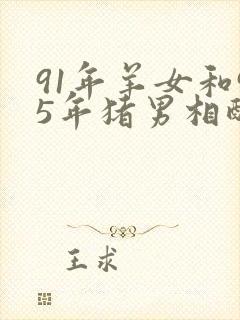 91年羊女和9
5年猪男相配
王求